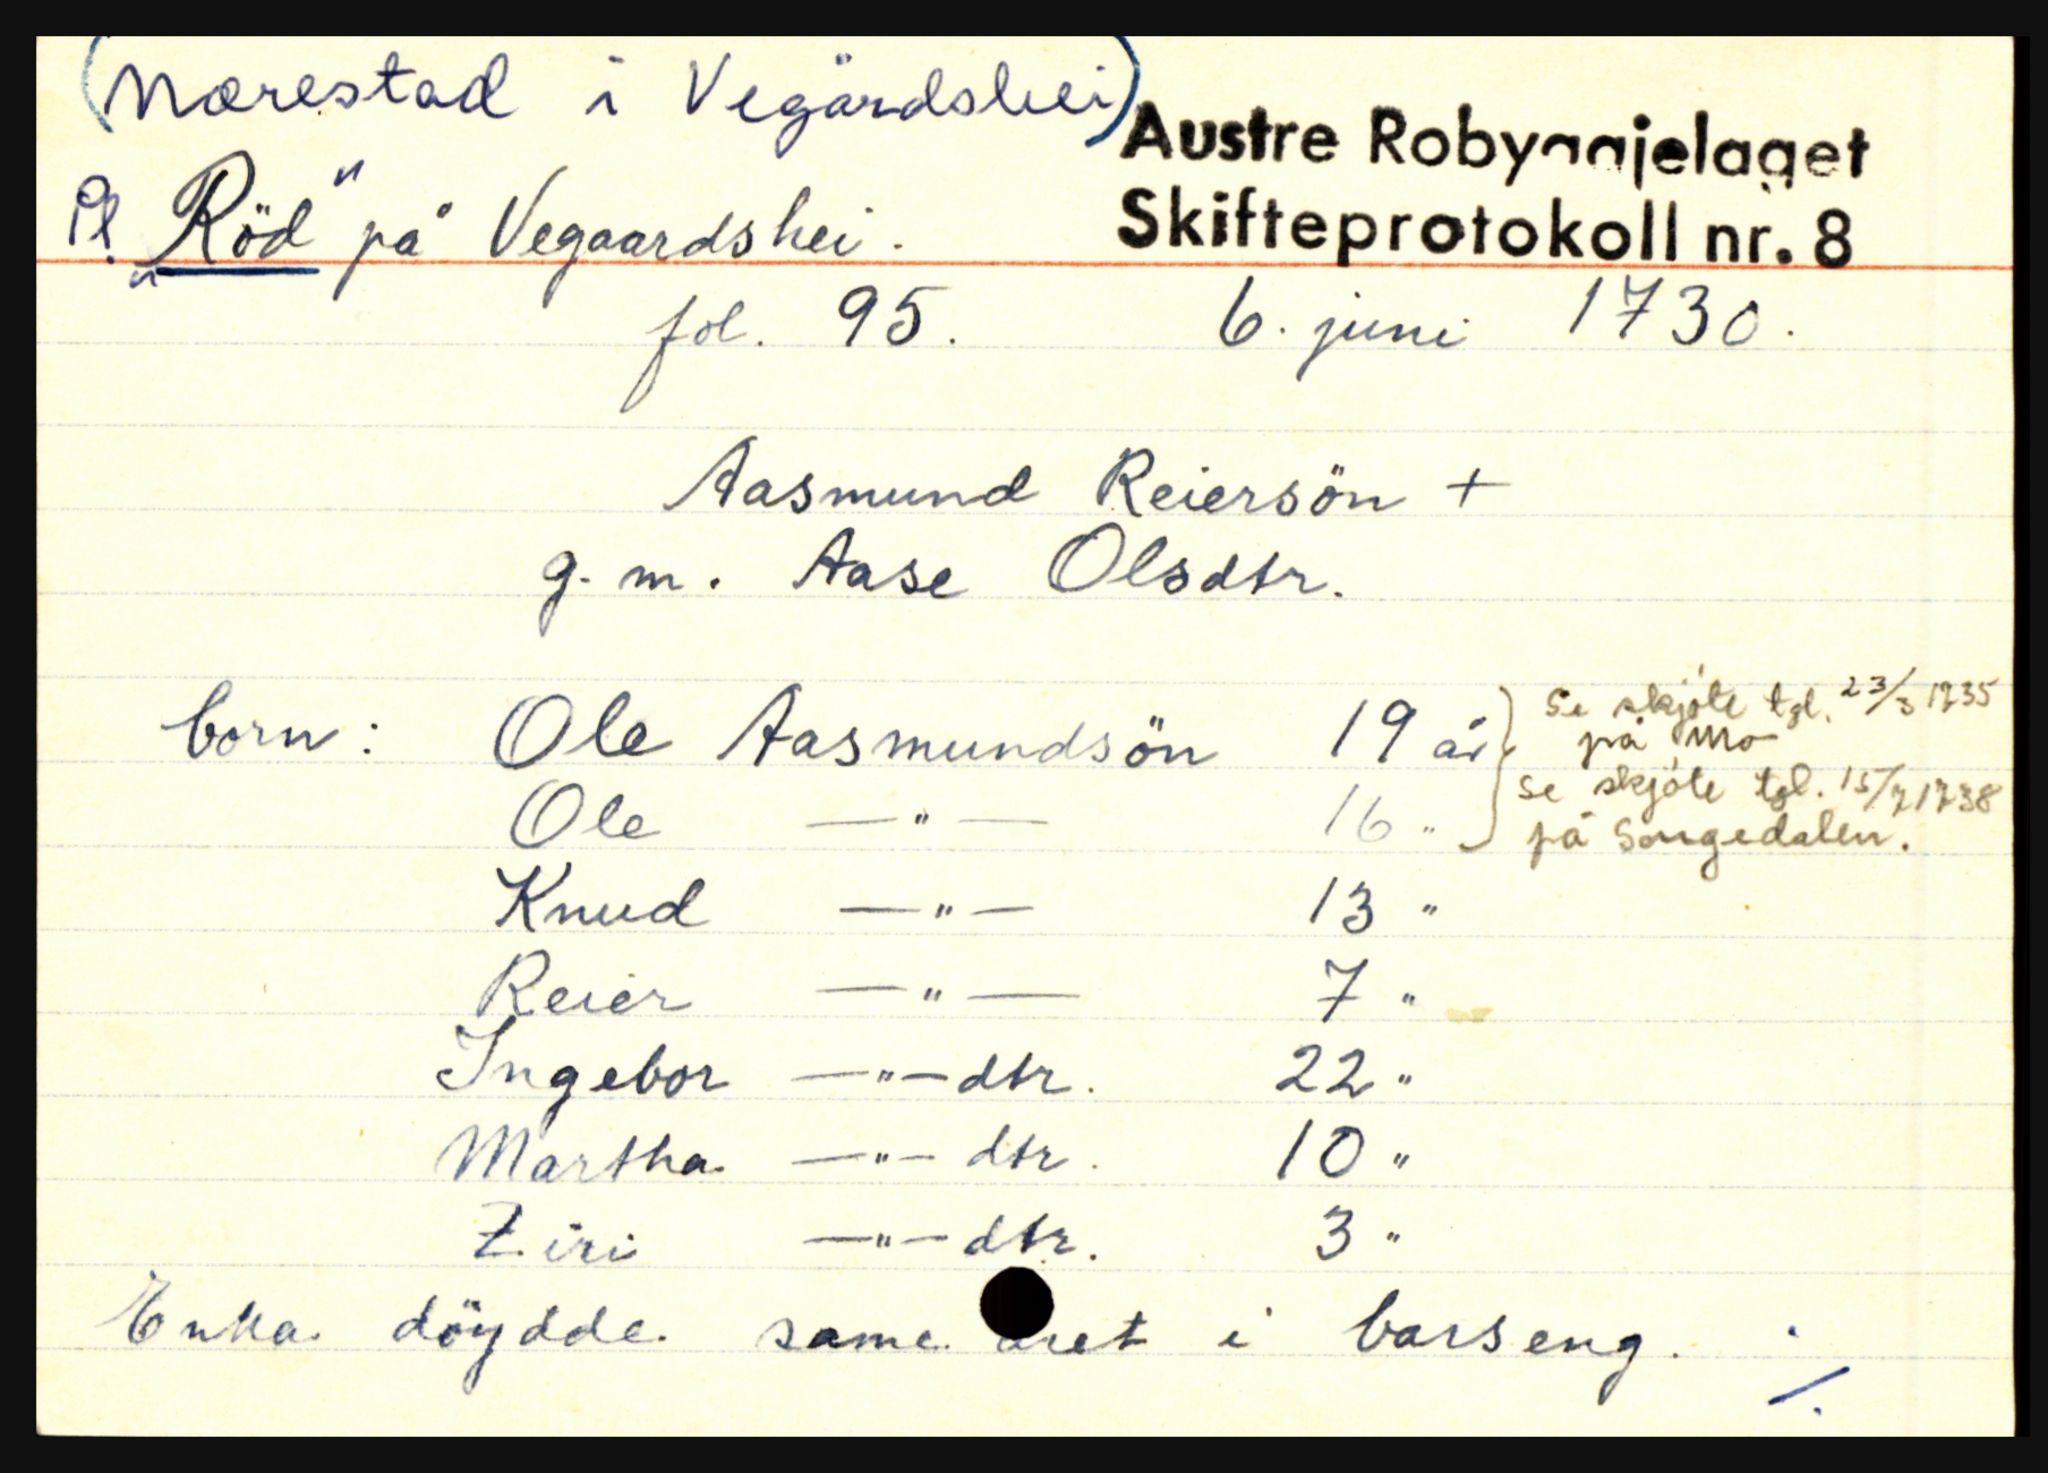 (Nærestad i Vegårdshei)
Austre Robyggjelaget
Pl. "Röd" på Vegaardshei.
Skifteprotokoll nr. 8
fol. 95. 6. juni 1730.
Aasmund Reiersön +
g. m. Aase Olsdtr.
born: Ole Aasmundsön 19 år } Se skjöte tgl. 23/3 1735
på Mo
Ole —"— 16 " se skjöte tgl. 15/7 1738
på Songedalen.
Knud —"— 13 "
Reier —"— 7 "
Ingebor —"—dtr. 22 "
Martha —"— dtr. 10 "
Ziri —"—dtr. 3 "
Enka döydde same året i barseng. ./.